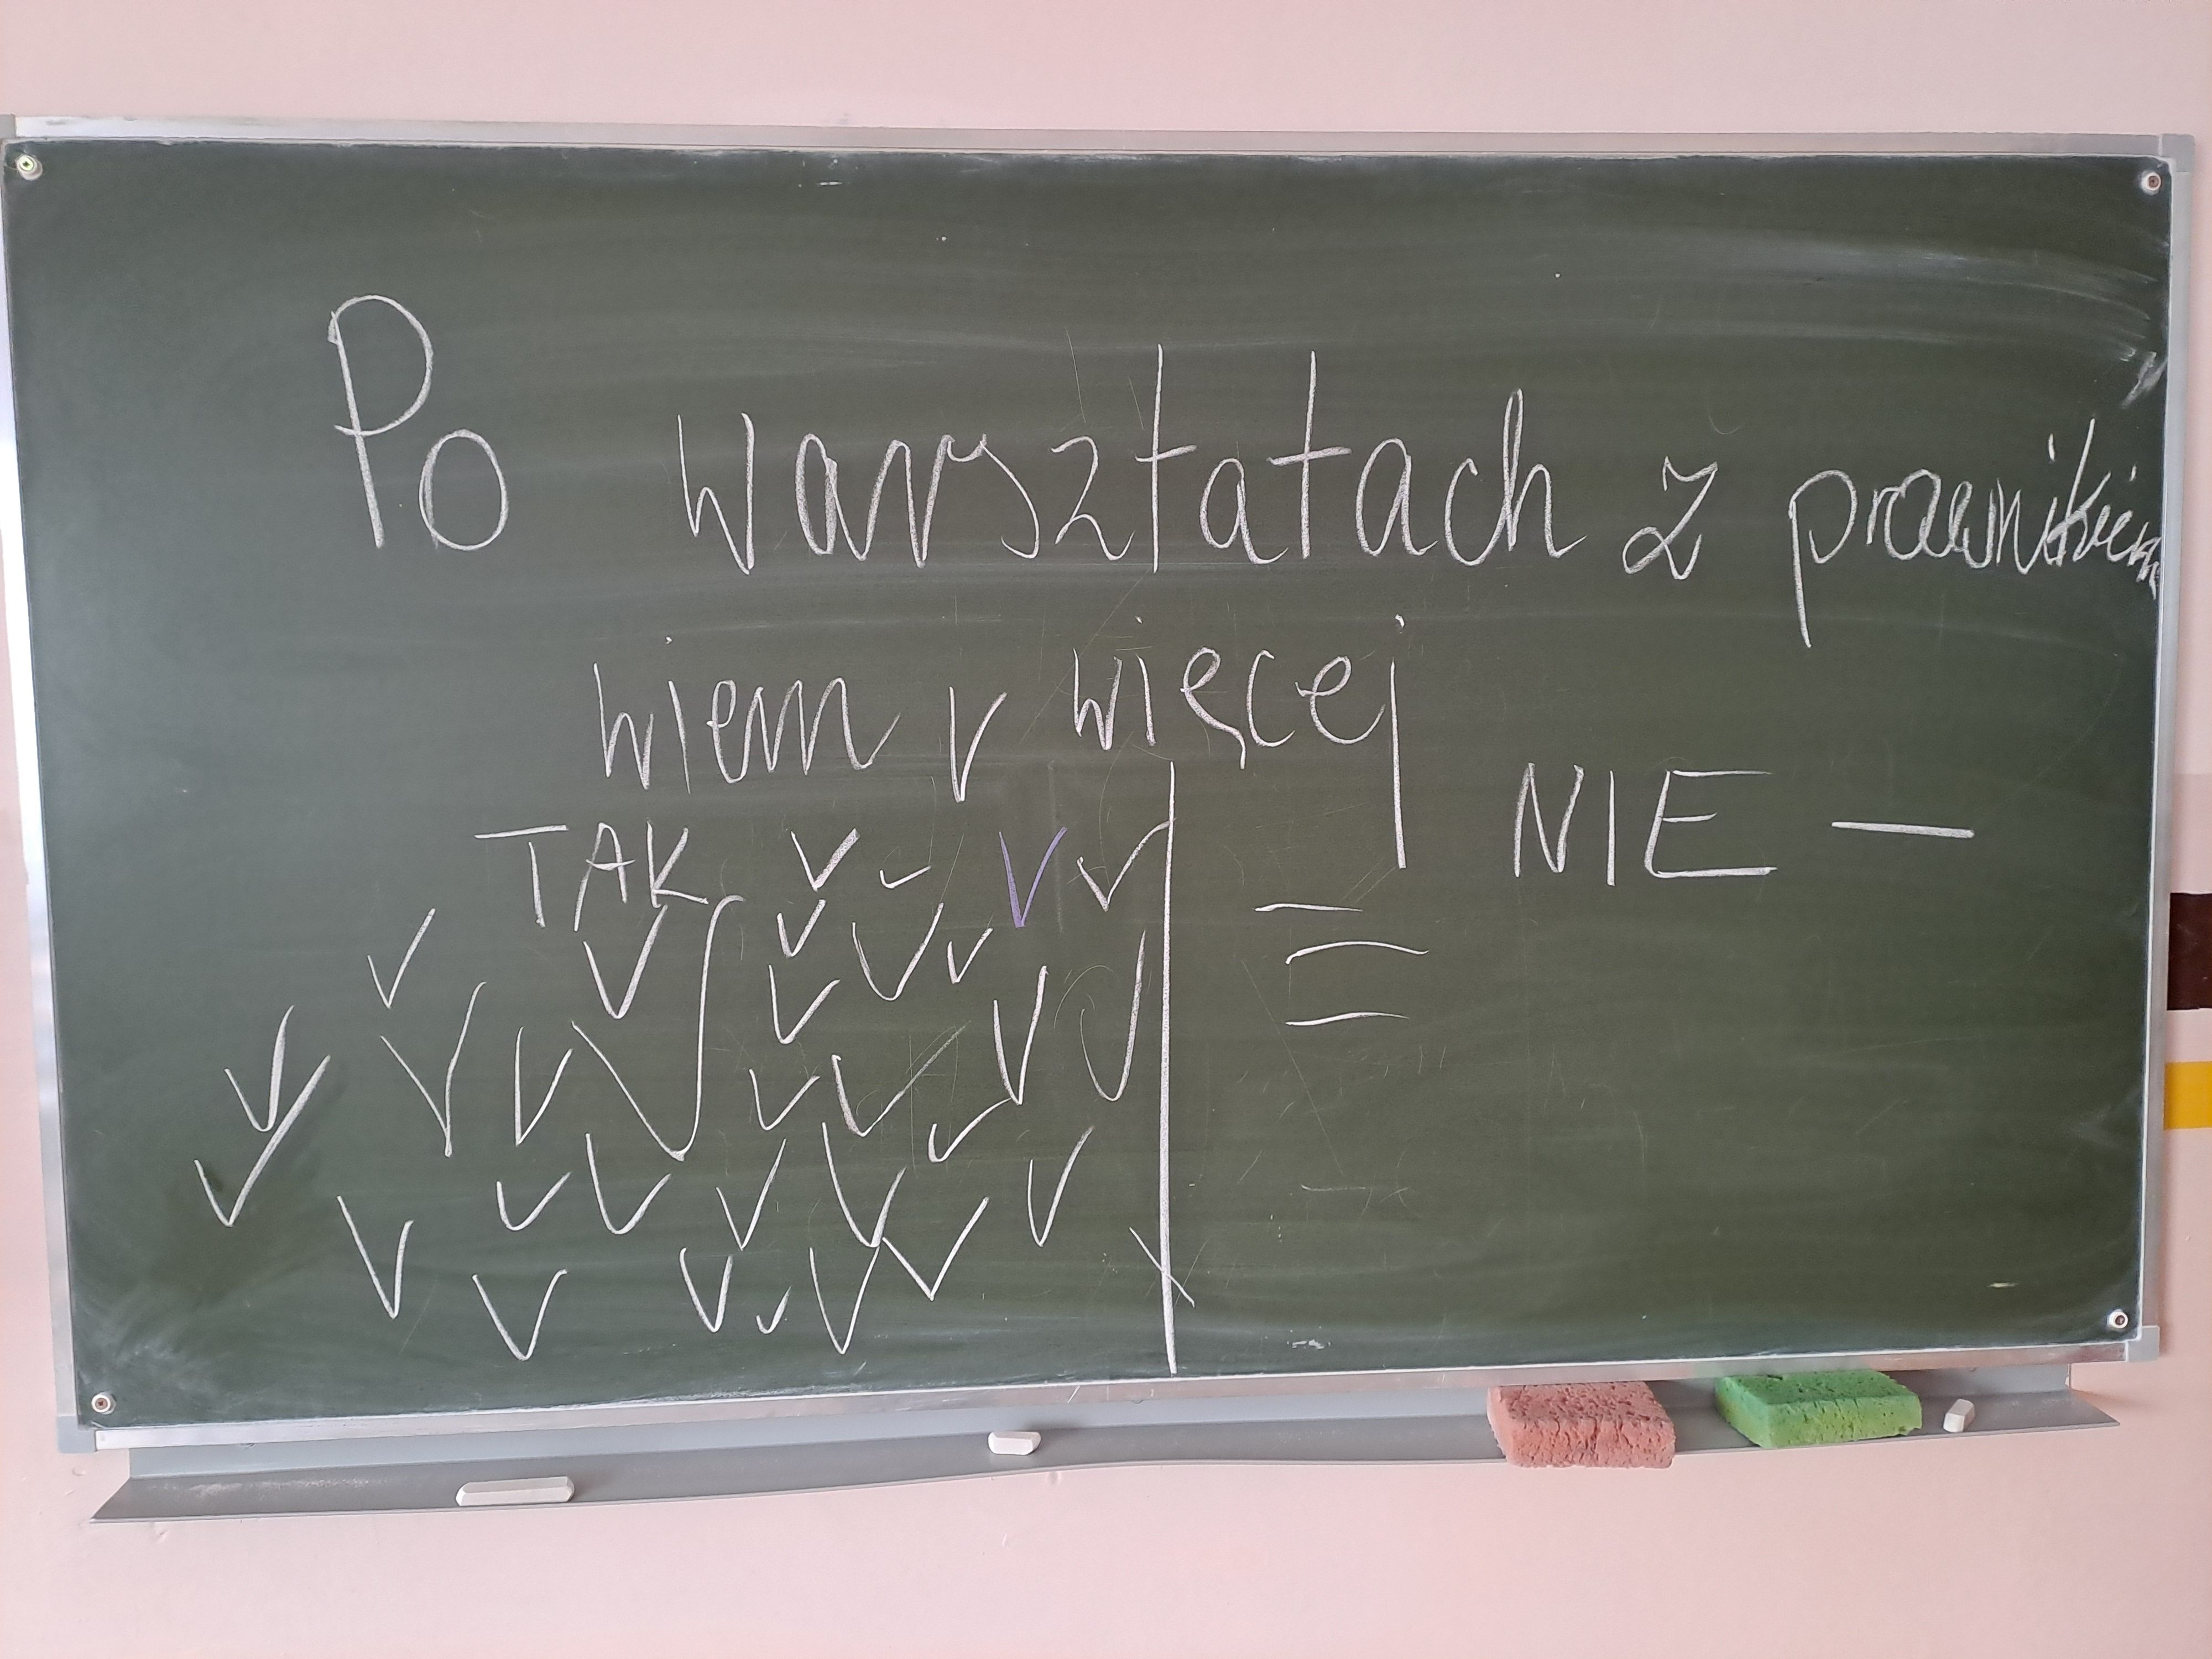 Po warsztatach z prawnikiem
wiem v więcej
TAK NIE —